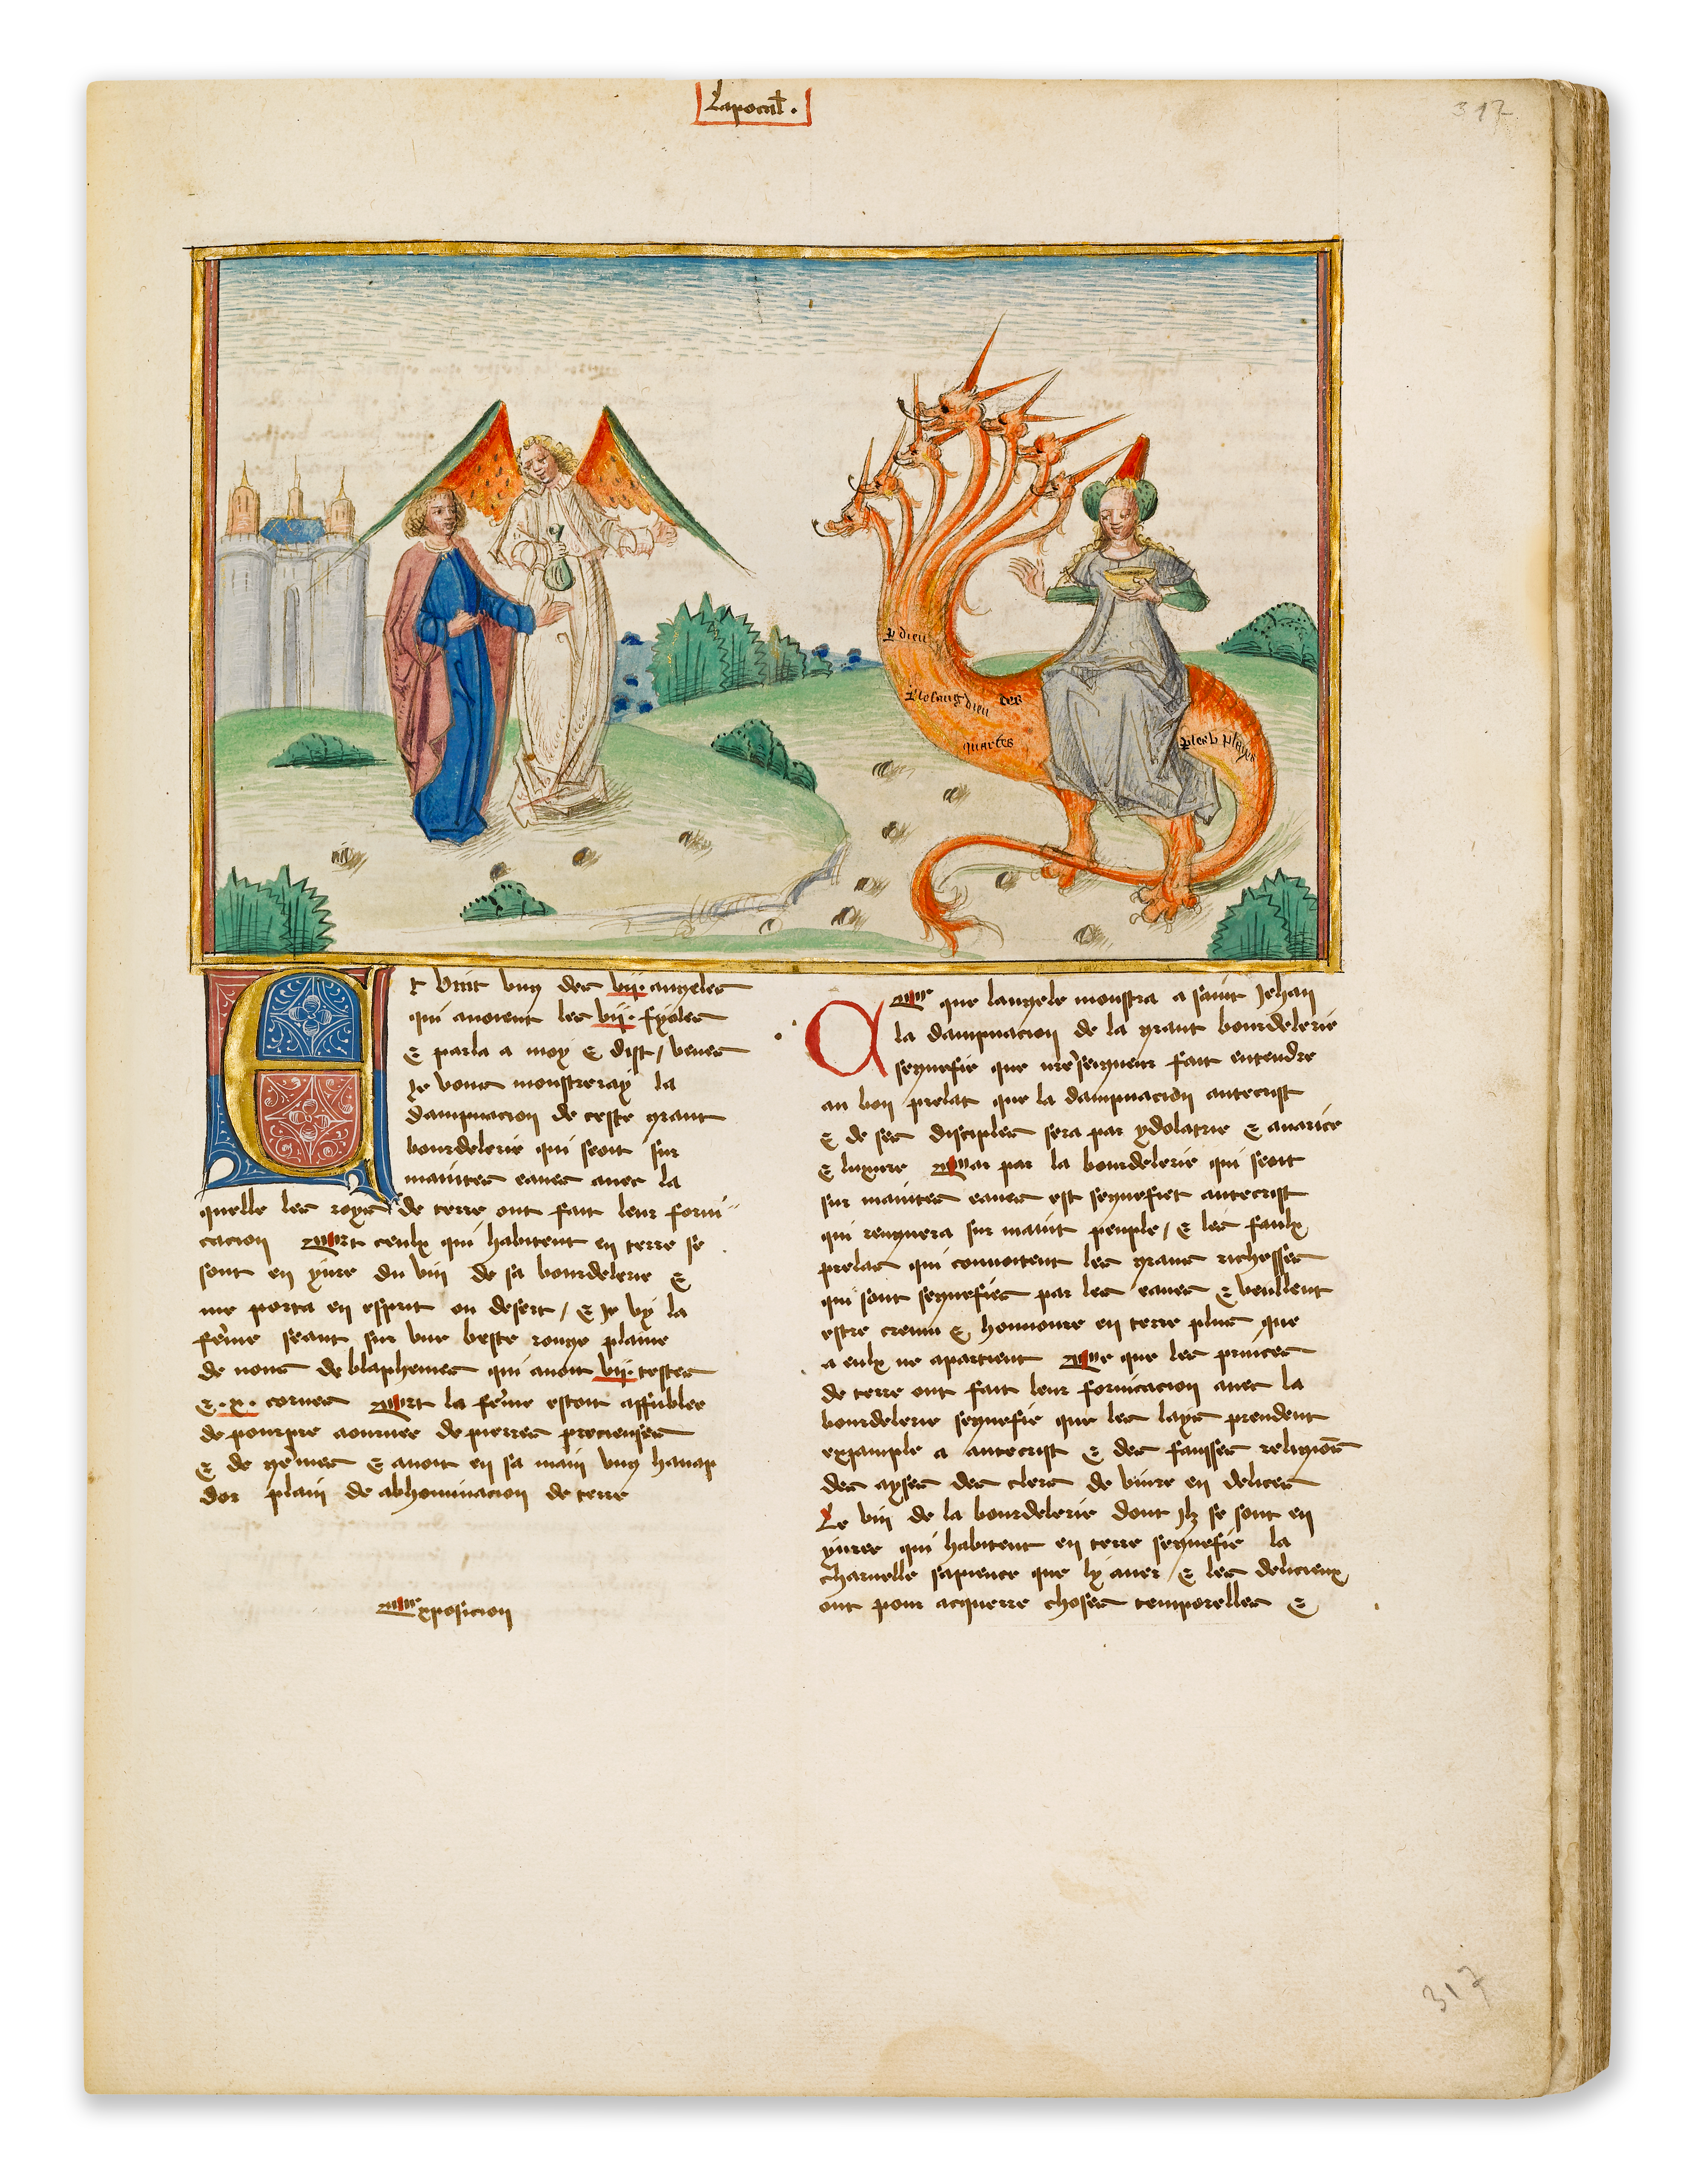 Lapocal.
317
p dieu
p le sang dieu des
martes
p les v playes
Et vint vng des vij. angeles
qui auoient les vij. fyoles
& parla a moy & dist / venes
Je vous monstreray la
dampnacion de ceste grant
bourdelerie qui seoit sur
maintes eaues auec la
quelle les roys de terre ont fait leur forni
cacion Et ceulx qui habitent en terre se
sont en yure du vin de sa bourdelerie &
me porta en esprit ou desert / & Je vy la
feme seant sur vne beste rouge plaine
de nons de blaphemes qui auoit vij. testes
& .x. cornes Et la feme estoit affublee
de pourpre aournee de pierres precieuses
& de gemes & auoit en sa main vng hanap
dor plain de abhominacion de terre
Exposicion
Ce que langele monstra a saint Jehan
la dampnacion de la grant bourdelerie
segnefie que nre seigneur fait entendre
au bon prelat que la dampnacion antecrist
& de ses disciples sera par ydolatrie & auarice
& luxure Car par la bourdelerie qui seoit
sur maintes eaues est segnefiet antecrist
qui rengnera sur maint peuple / & les faulx
prelas qui conuoitent les grans richesses
qui sont segnefies par les eaues & veullent
estre cremu & honnoure en terre plus que
a eulx ne apartient Ce que les princes
de terre ont fait leur fornicacion auec la
bourdelerie segnefie que les lays prendent
exzample a antecrist & des fausses religions
des ayses des clers de viure en delices
Le vin de la bourdelerie dont Jlz se sont en
yures qui habitent en terre segnefie la
charnelle sapience que ly auer & les delicieux
ont pour acquerre choses temporelles &
317